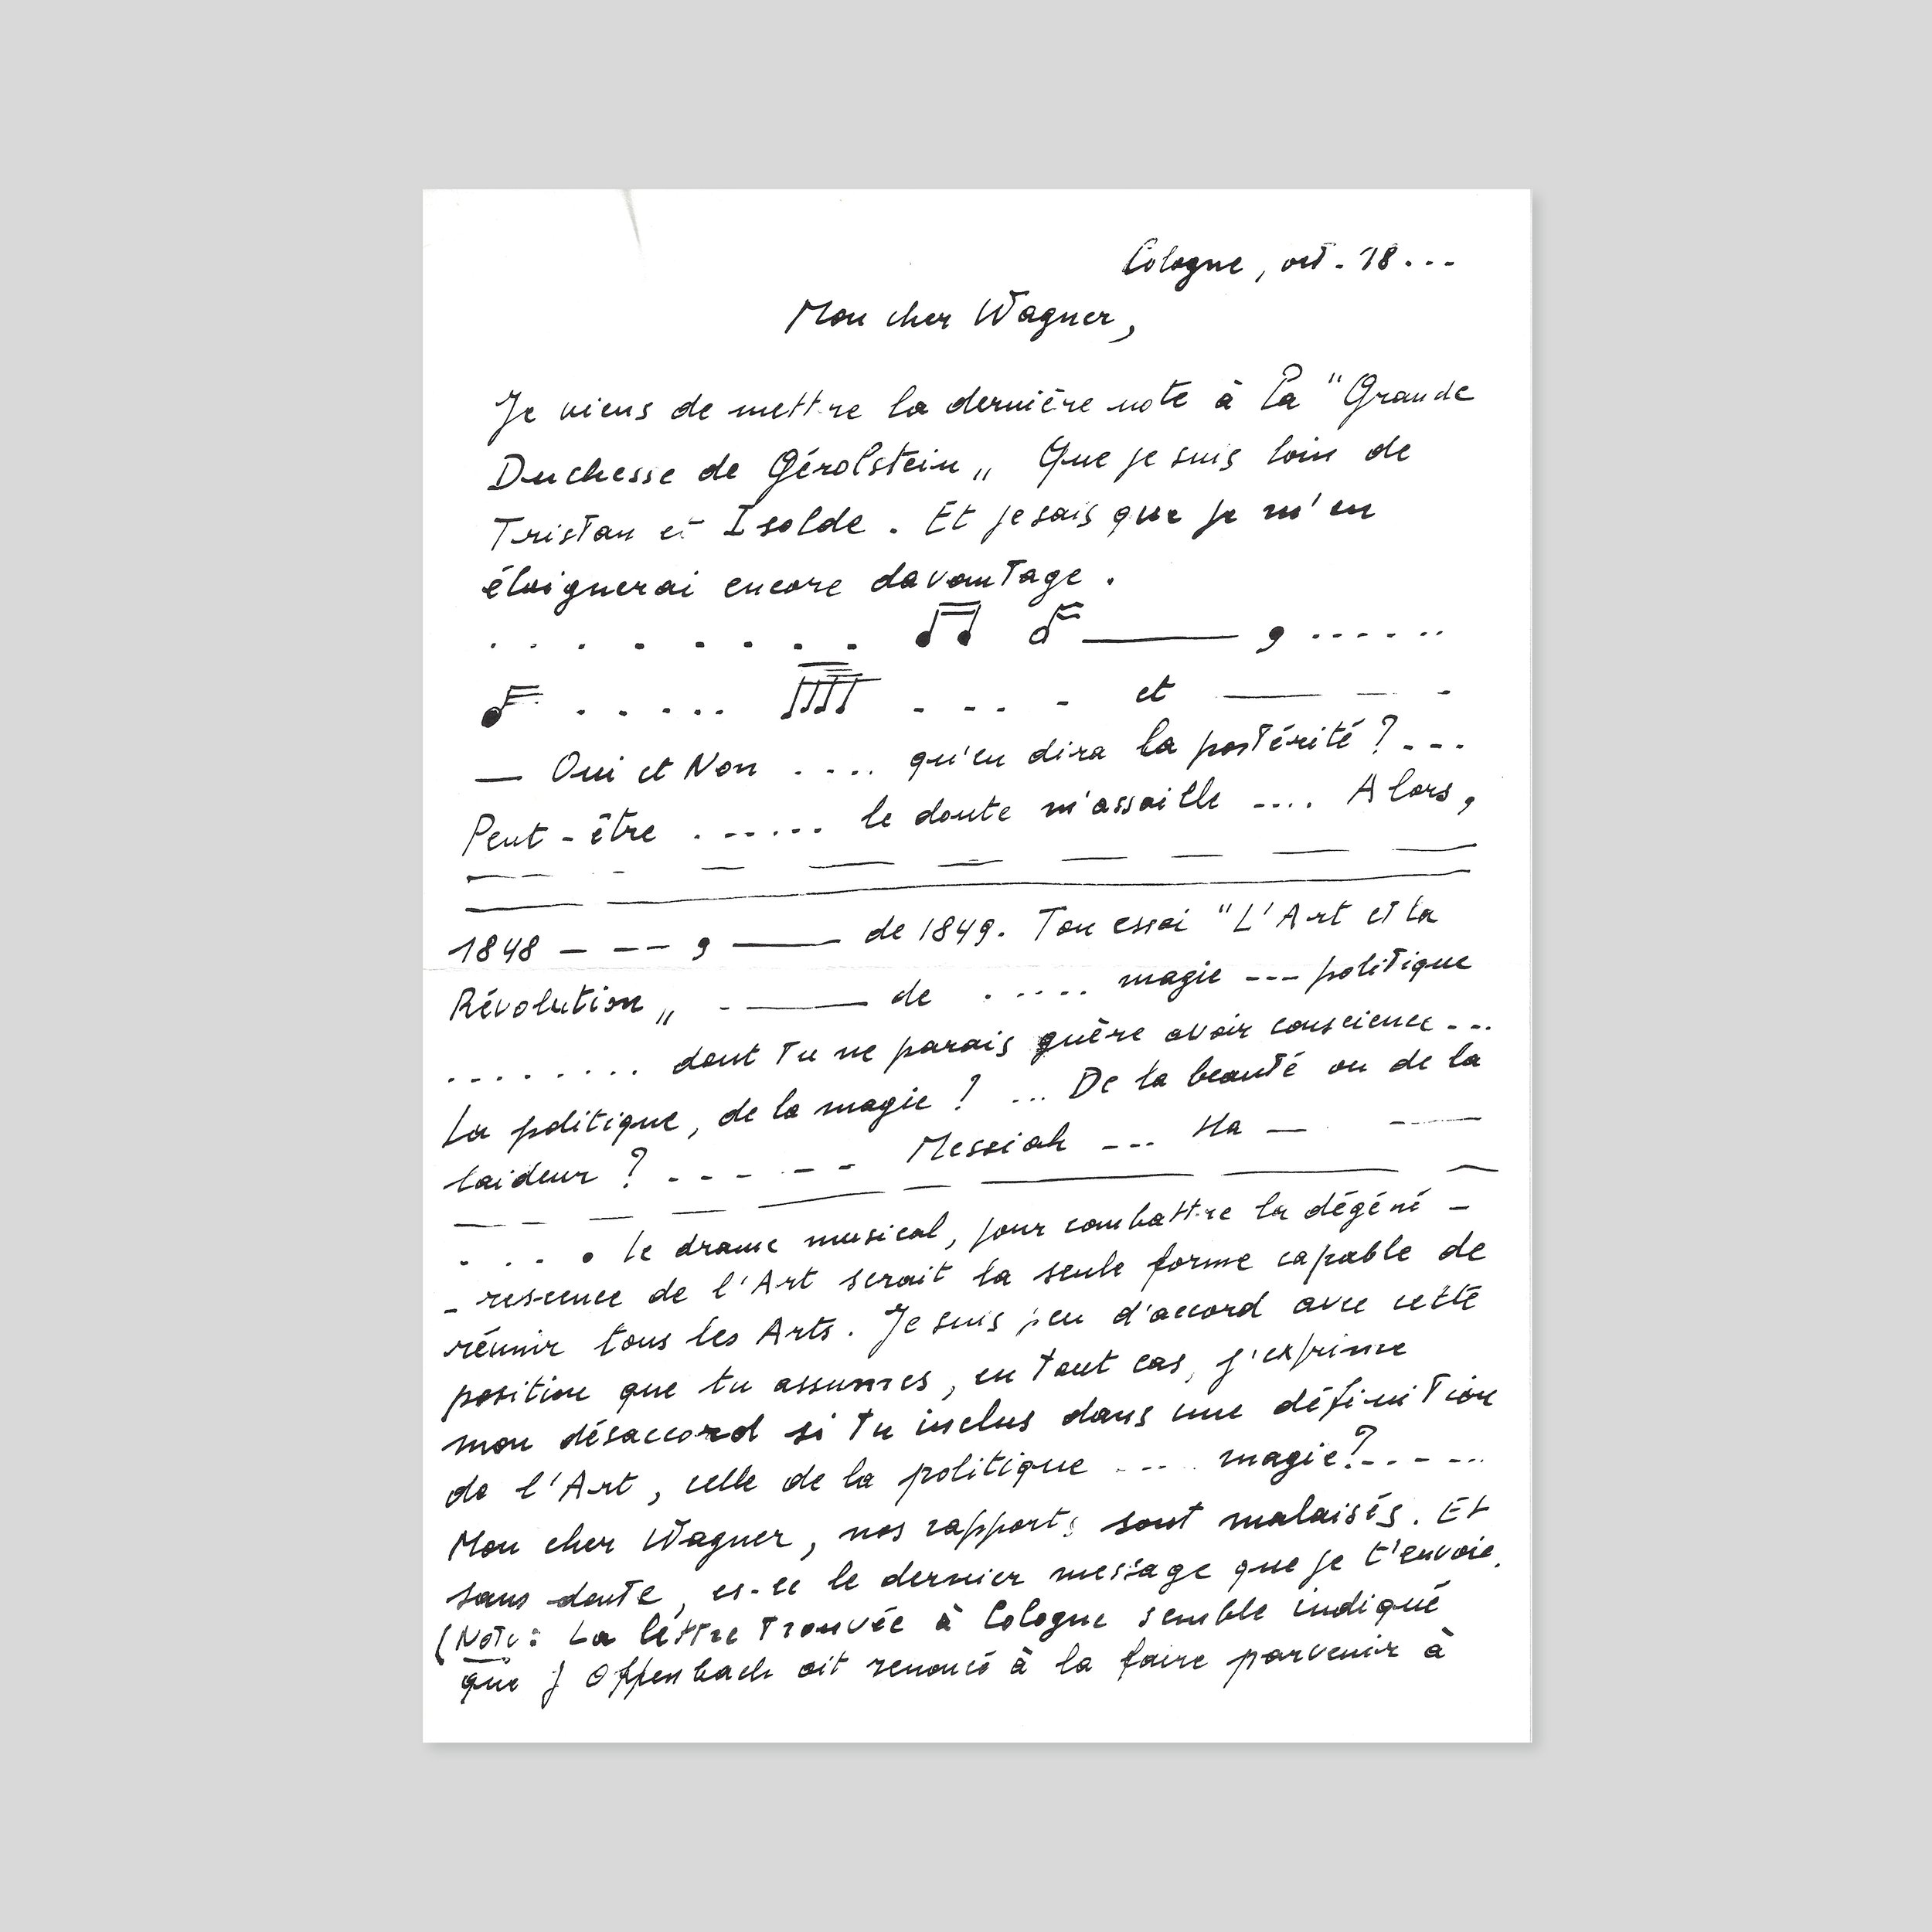 Cologne, oct. 18...
Mon cher Wagner,
Je viens de mettre la dernière note à La "Grande
Duchesse de Gérolstein„ Que je suis loin de
Tristan et Isolde. Et je sais que je m'en
éloignerai encore davantage.
......... ♫ ♬ ——— , ......
♬ ..... ♬ .... et ——— — -
— Oui et Non .... qu'en dira la postérité ? ...
Peut-être ...... le doute m'assaille .... Alors,
1848 — --- , ——— de 1849. Ton essai "L'Art et la
Révolution„ - ——— de ..... magie --- politique
........ dont tu ne parais guère avoir conscience ...
La politique, de la magie ? ... De la beauté ou de la
laideur ? - - - - - - Messiah --- Ha — - ——
- . . • le drame musical, pour combattre la dégéné -
- rescence de l'Art serait la seule forme capable de
réunir tous les Arts. Je suis peu d'accord avec cette
position que tu assumes, en tout cas, j'exprime
mon désaccord si tu inclus dans une définition
de l'Art, celle de la politique .... magie? - - - - ...
Mon cher Wagner, nos rapports sont malaisés. Et
sans doute, es-ce le dernier message que je t'envoie.
(Note: La lettre trouvée à Cologne semble indiqué
que J Offenbach ait renoncé à la faire parvenir à